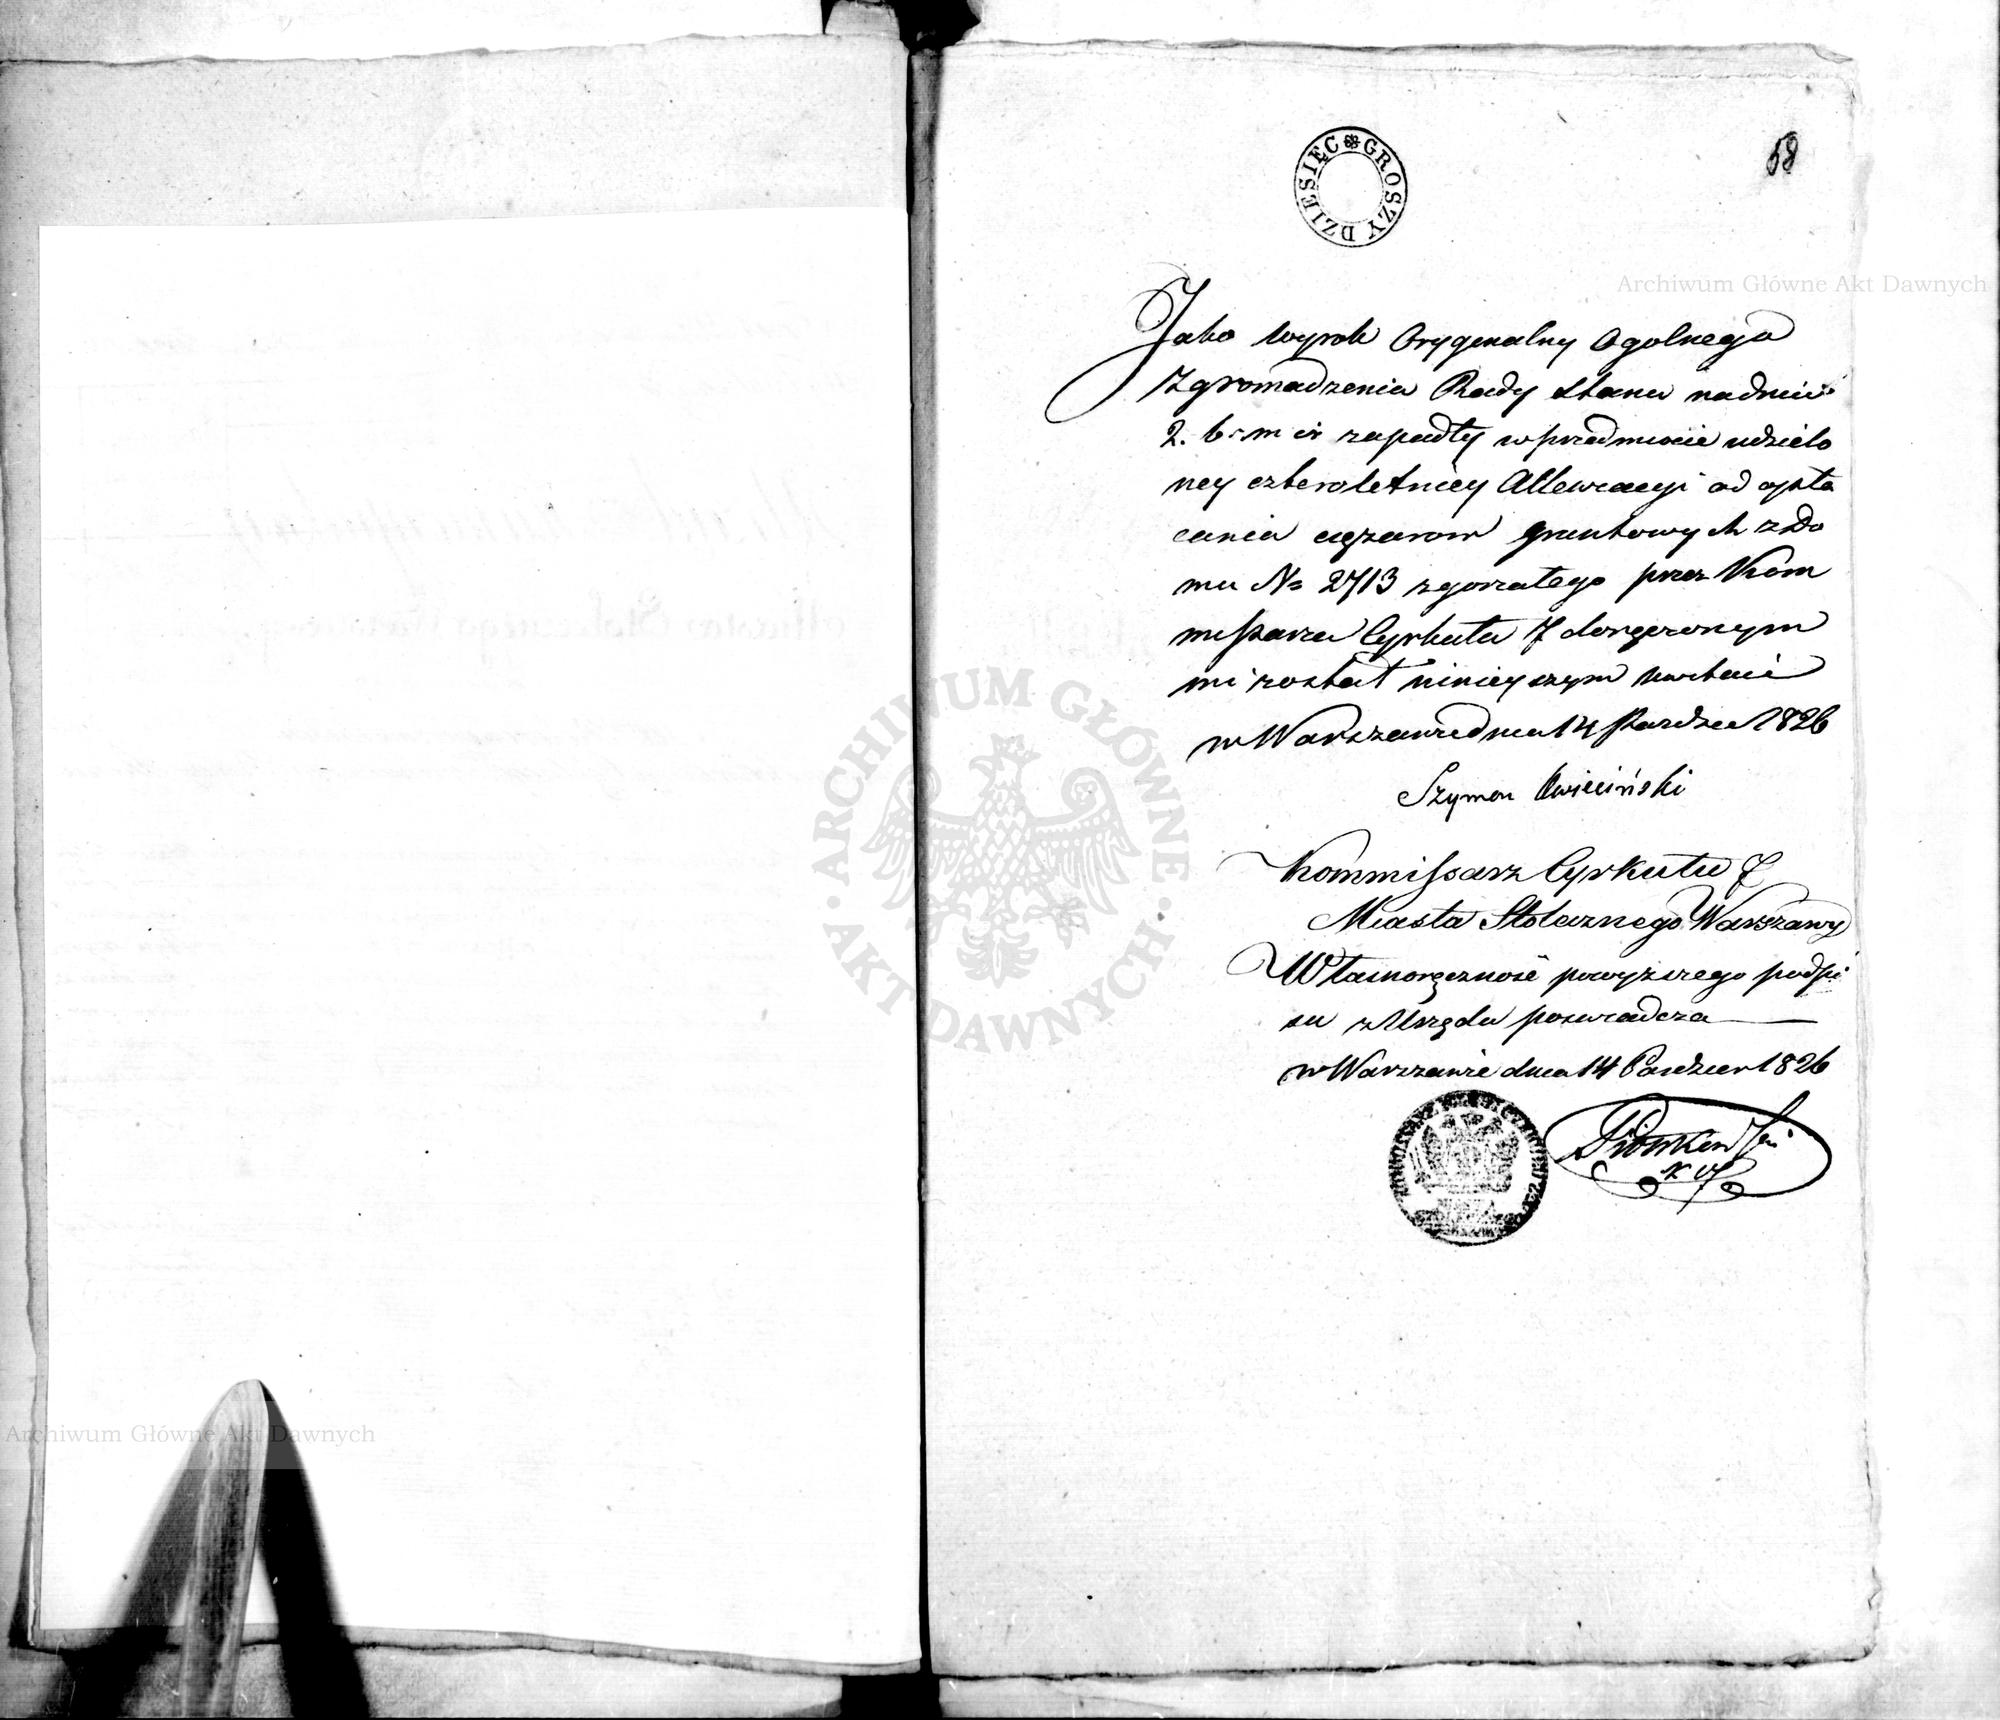 GROSZY DZIESIĘC
68
Jako wyrok Oryginalny Ogolnego
Zgromadzenia Rady Stanu na dniu
2. b: m i r zapadły w przedmiocie udzielo
ney czteroletniey Allewiacyi od opła
cania ciężarow gruntowych z Do
mu No 2713 zgorzałego przez Kom
missarza Cyrkułu 7 doręczonym
mi został ninieyszym kwituię
w Warszawie dnia 14 Pazdzier 1826
Szymon Kwieciński
Kommissarz Cyrkułu 7
Miasta Stołecznego Warszawy
Własnoręczność powyższego podpi
su z Urzędu poswiadcza
w Warszawie dnia 14 Pazdzier 1826
Archiwum Główne Akt Dawnych
ARCHIWUM GŁÓWNE AKT DAWNYCH
Archiwum Główne Akt Dawnych